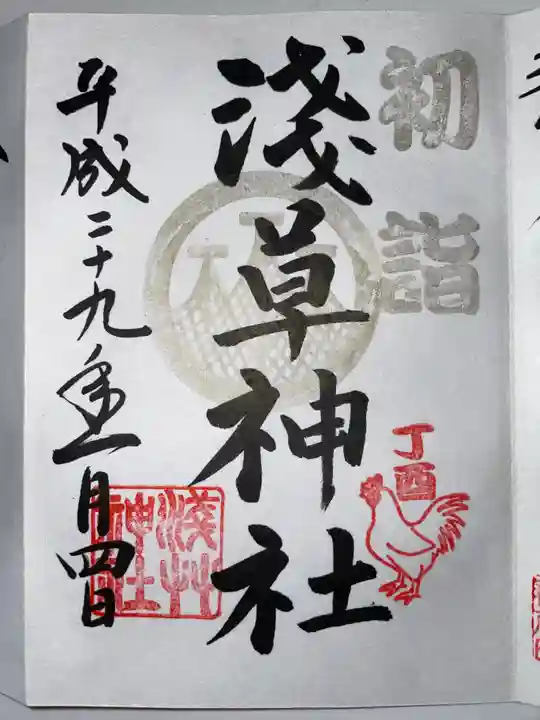 初詣
丁酉
淺草神社
淺草神社
平成二十九年一月四日